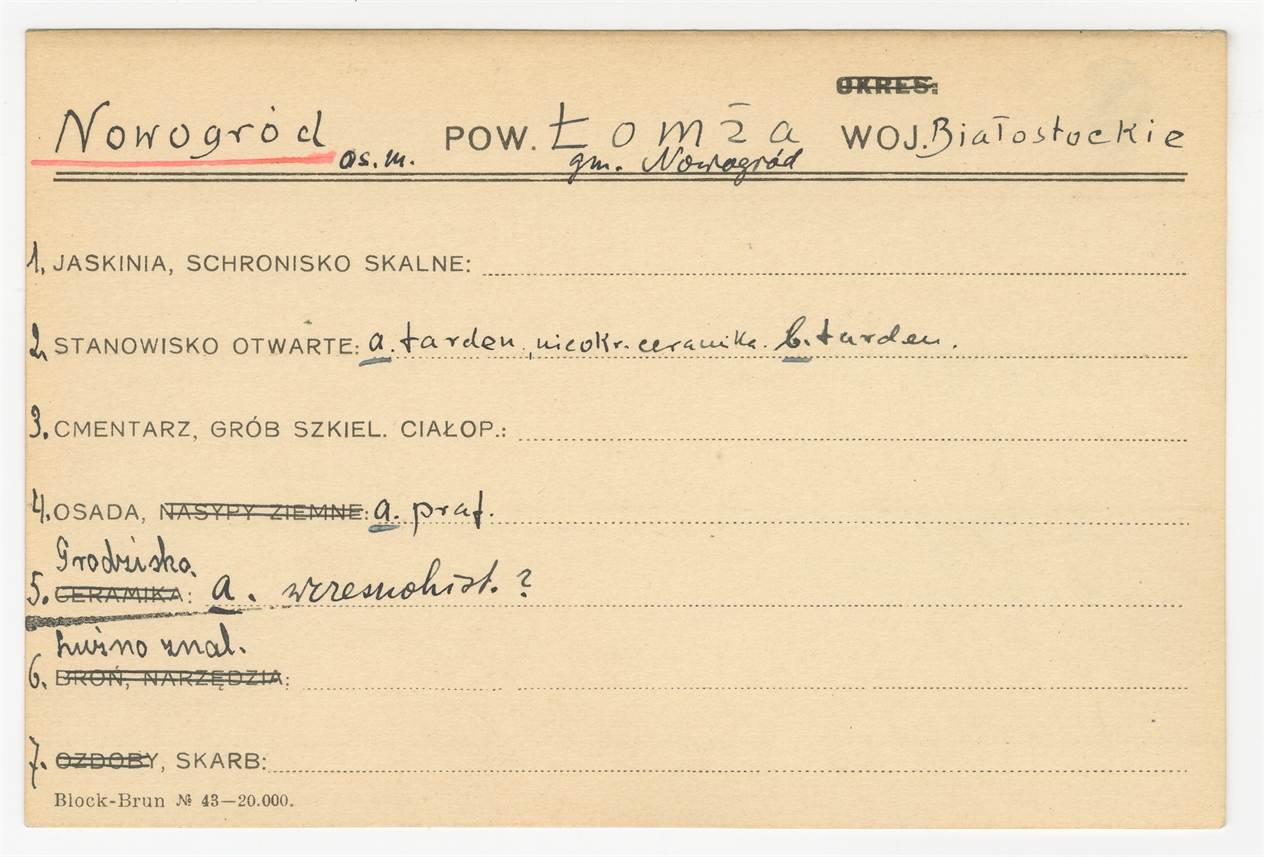 OKRES:
Nowogród os.m. POW. Łomża WOJ. Białostockie
gm. Nowogród
1. JASKINIA, SCHRONISKO SKALNE:
2. STANOWISKO OTWARTE: a. tarden, nieokr. ceramika. b. tarden.
3. CMENTARZ, GRÓB SZKIEL. CIAŁOP.:
4. OSADA, NASYPY ZIEMNE: a. praf.
Grodzisko.
5. CERAMIKA: a. wczesnohist. ?
Luźno znal.
6. BROŃ, NARZĘDZIA:
7. OZDOBY, SKARB:
Block-Brun № 43—20.000.